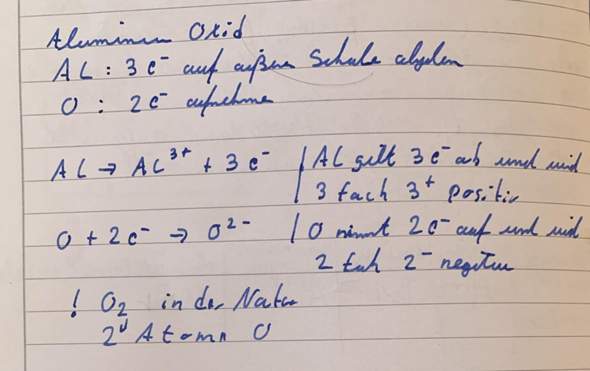 Aluminium Oxid
AL : 3 e⁻ auf äußere Schale abgeben
O : 2e⁻ aufnehme
AL → AL³⁺ + 3 e⁻ | AL gibt 3 e⁻ ab und wird
3 fach 3⁺ positiv
O + 2e⁻ → O²⁻ | O nimmt 2e⁻ auf und wird
2 fach 2⁻ negativ
! O₂ in der Natur
2 Atome O